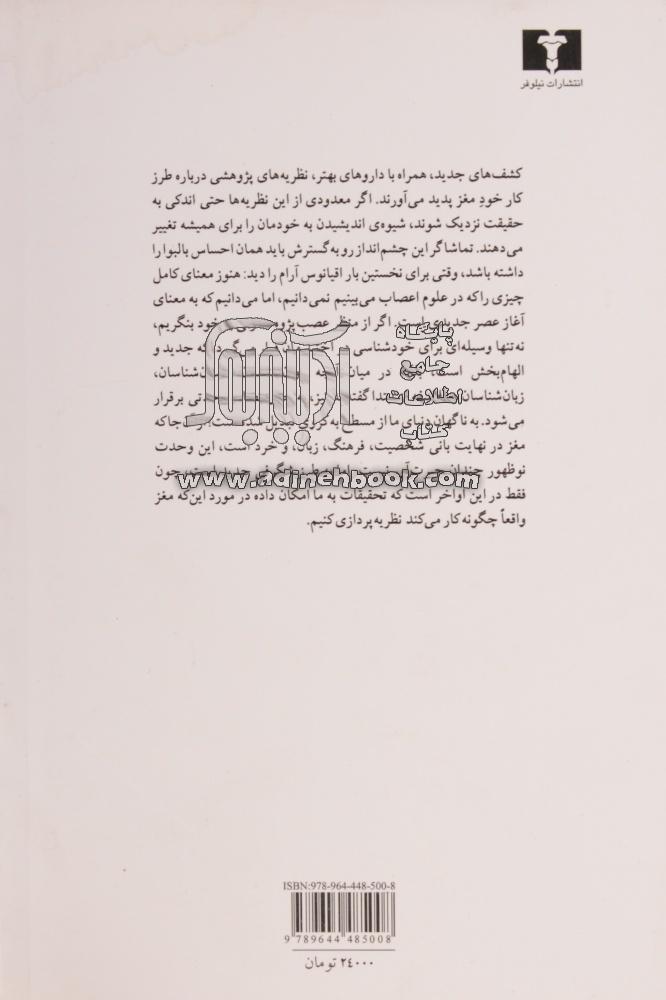 انتشارات نیلوفر
کشف‌های جدید، همراه با داروهای بهتر، نظریه‌های پژوهشی درباره طرز
کار خودِ مغز پدید می‌آورند. اگر معدودی از این نظریه‌ها حتی اندکی به
حقیقت نزدیک شوند، شیوه‌ی اندیشیدن به خودمان را برای همیشه تغییر
می‌دهند. تماشاگر این چشم‌انداز رو به گسترش باید همان احساس بالبوا را
داشته باشد، وقتی برای نخستین بار اقیانوس آرام را دید: هنوز معنای کامل
چیزی را که در علوم اعصاب می‌بینیم نمی‌دانیم، اما می‌دانیم که به معنای
آغاز عصر جدیدی است. اگر از منظر عصب‌پژوهی به خود بنگریم،
نه‌تنها وسیله‌ای برای خودشناسی که جدید و
الهام‌بخش است، در میان
زبان‌شناسان برقرار
می‌شود. به ناگهان دنیای ما از مسطح به کروی تبدیل شده است. از آنجا که
مغز در نهایت بانی شخصیت، فرهنگ، زبان، و خرد است، این وحدت
نوظهور چندان حیرت‌آور نیست، جدید است، چون
فقط در این اواخر است که تحقیقات به ما امکان داده در مورد این‌که مغز
واقعاً چگونه کار می‌کند نظریه‌پردازی کنیم.
پایگاه
جامع
اطلاعات
کتاب
آدینه‌بوک
www.adinehbook.com
ISBN:978-964-448-500-8
9 789644 485008
۲۴۰۰۰ تومان